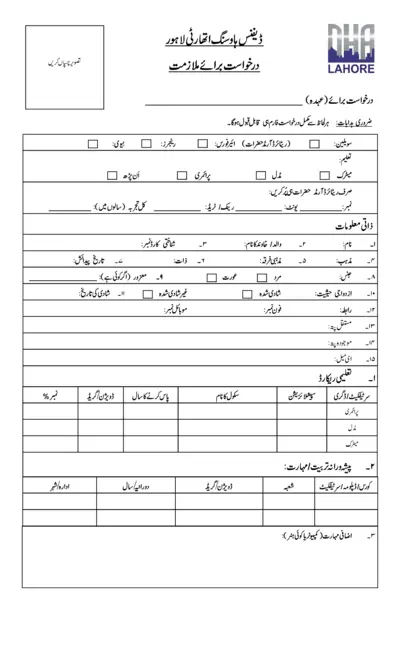 تصویر چسپاں کریں
ڈیفنس ہاؤسنگ اتھارٹی لاہور
درخواست برائے ملازمت
DHA
LAHORE
درخواست برائے (عہدہ)
ضروری ہدایات: ہر لحاظ سے مکمل درخواست فارم ہی قابل قبول ہوگا۔
سویلین: (ریٹائرڈ آرمڈ حضرات) ائیر فورس: رینجرز: نیوی:
تعلیم:
میٹرک مڈل پرائمری اَن پڑھ
صرف ریٹائرڈ آرمڈ حضرات ہی پُر کریں:
نمبر: یونٹ: رینک/ٹریڈ: کل تجربہ (سالوں میں):
ذاتی معلومات
۱۔ نام: ۲۔ والد/خاوند کا نام: ۳۔ شناختی کارڈ نمبر:
۴۔ مذہب: ۵۔ مذہبی فرقہ: ۶۔ ذات: ۷۔ تاریخ پیدائش:
۸۔ جنس: مرد عورت ۹۔ معذور (اگر کوئی ہے):
۱۰۔ ازدواجی حیثیت: شادی شدہ غیر شادی شدہ ۱۱۔ شادی کی تاریخ:
۱۲۔ رابطہ: فون نمبر: موبائل نمبر:
۱۳۔ مستقل پتہ:
۱۴۔ موجودہ پتہ:
۱۵۔ ای میل:
۱۔ تعلیمی ریکارڈ
سرٹیفکیٹ/ڈگری سپیشلائزیشن سکول کا نام پاس کرنے کا سال ڈویژن/گریڈ نمبر %
پرائمری
مڈل
میٹرک
۲۔ پیشہ ورانہ تربیت/مہارت:
کورس/ڈپلومہ/سرٹیفکیٹ شعبہ ڈویژن/گریڈ دورانیہ/سال ادارہ/شہر
۳۔ اضافی مہارت (کمپیوٹر یا کوئی ہنر):